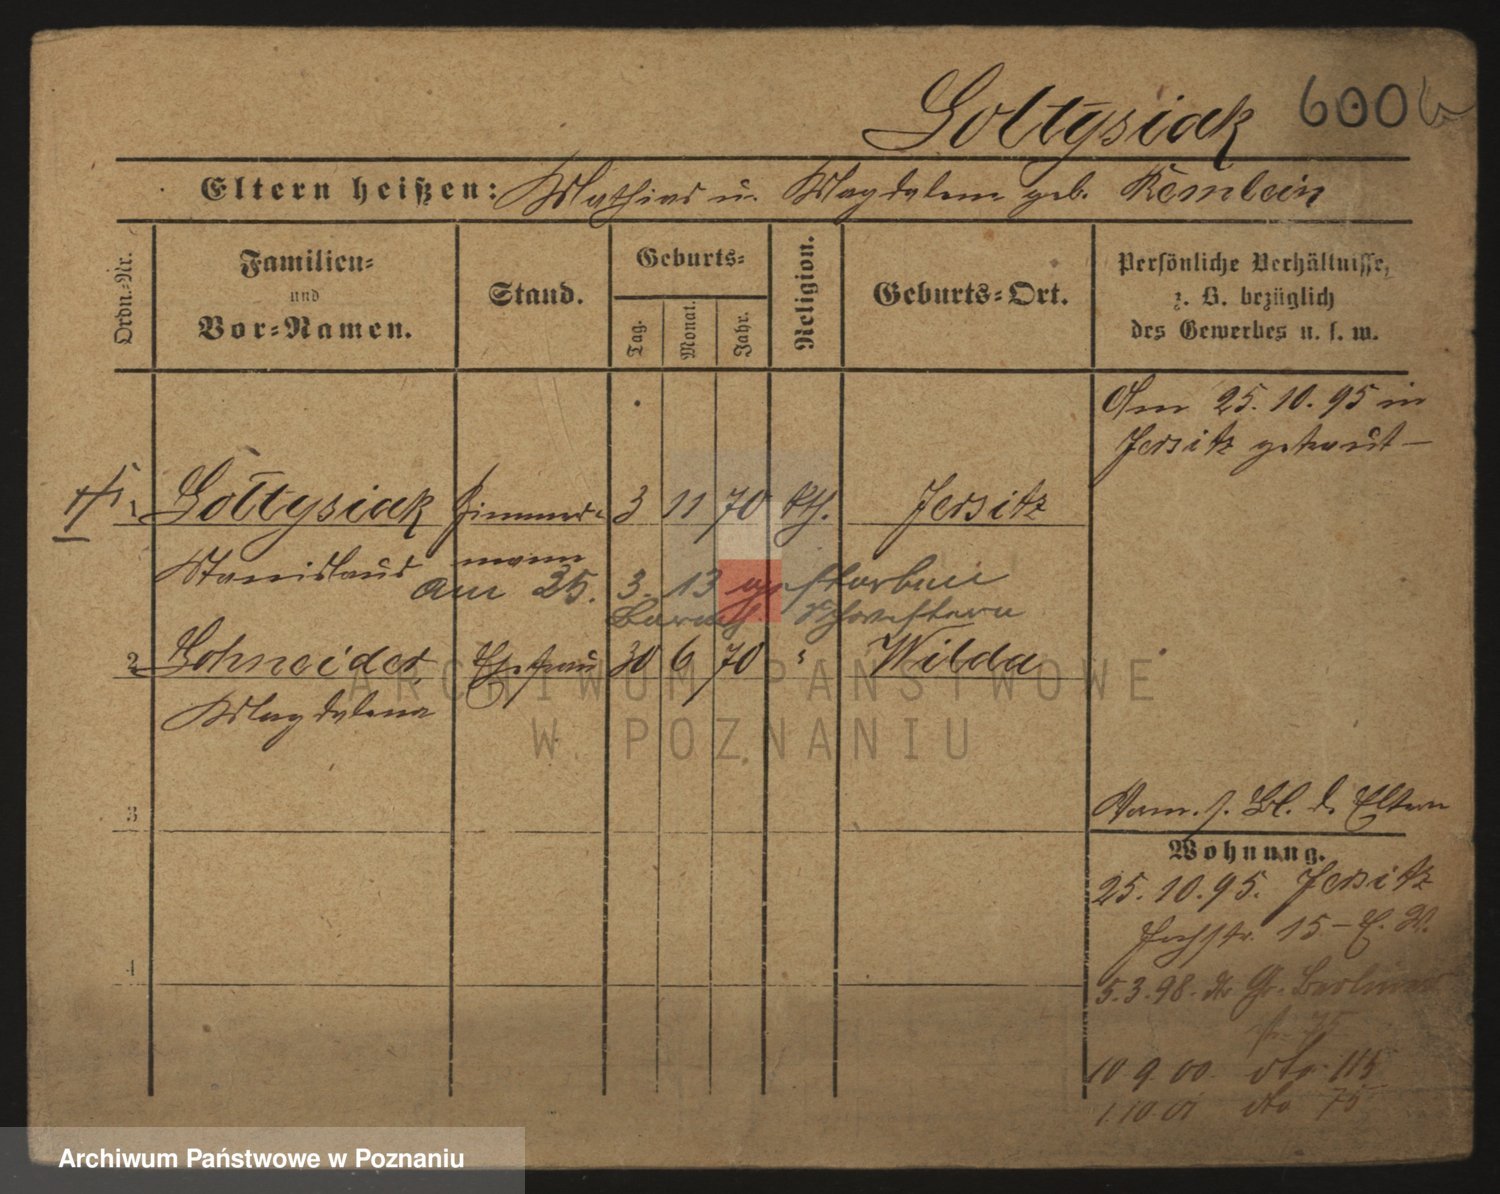 Goltysiak 600
Eltern heißen: Mathias u. Magdalena geb. Remlein
Ordn.-Nr.
Familien-
und
Vor-Namen.
Stand.
Geburts-
Tag.
Monat.
Jahr.
Religion.
Geburts-Ort.
Persönliche Verhältnisse,
z. B. bezüglich
des Gewerbes u. s. w.
Am 25.10.95 in
Jersitz getraut
1 Goltysiak Zimmer- 3 11 70 kth. Jersitz
Stanislaus mann
am 25. 3. 13 gestorben
Barmh. Schwestern
2 Schneider Ehefrau 30 6 70 " Wilda
Magdalena
3
Verm. s. Bl. d. Eltern
Wohnung.
25.10.95. Jersitz
15
4
5.3.98. Gr. Berliner
str. 75
10 9 00. dto 115
1.10 01 dto 75
ARCHIWUM PAŃSTWOWE
W POZNANIU
Archiwum Państwowe w Poznaniu